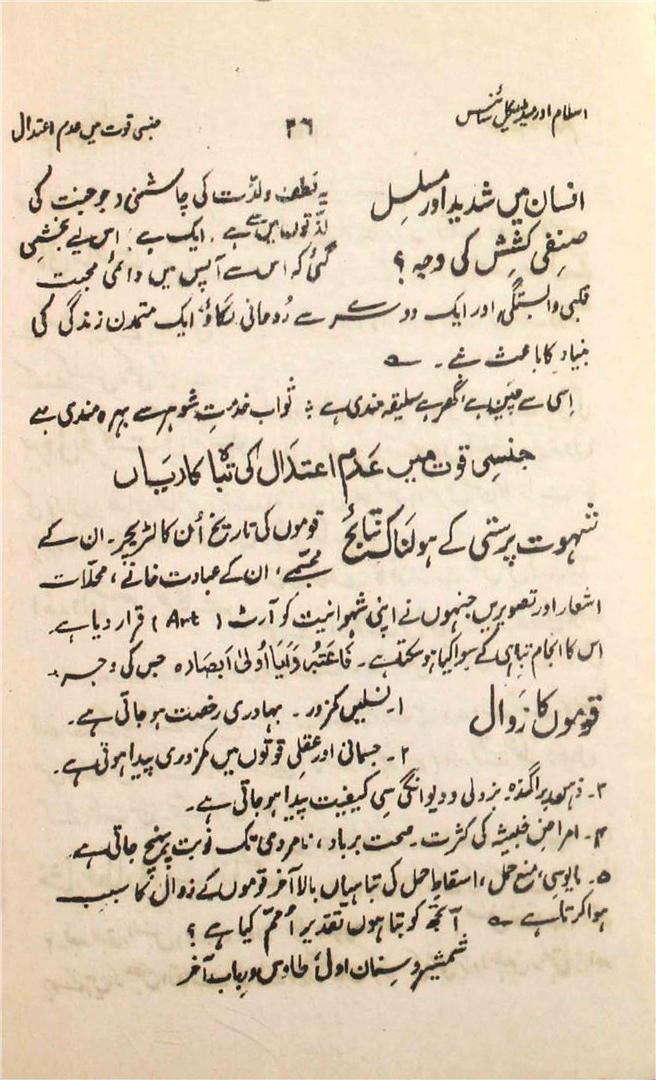 اسلام اور میڈیکل سائنس ۳۶ جنسی قوت میں عدم اعتدال
انسان میں شدید اور مسلسل
صنفی کشش کی وجہ ؟
یہ لطف ولذت کی چاشنی جو جنت کی
لذتوں میں سے ہے، ایک ہے، اس لیے بخشی
گئی کہ اس سے آپس میں دائمی محبت
قلبی وابستگی اور ایک دوسرے سے رُوحانی لگاؤ، ایک متمدن زندگی کی
بنیاد کا باعث بنے۔ ؎
اِسی سے چین ہے، گھر ہے سلیقہ مندی ہے ؛ ثواب خدمتِ شوہر سے بہرہ مندی ہے
جنسِی قوت میں عَدم اعتدَال کی تبَاہ کاریَاں
شہوت پرستی کے ہولناک نتائج
قوموں کی تاریخ اُن کا لٹریچر۔ ان کے
مجسّمے، ان کے عبادت خانے، محلّات
اشعار اور تصویریں جنہوں نے اپنی شہوانیت کو آرٹ (Art) قرار دیا ہے
اس کا انجام تباہی کے سوا کیا ہو سکتا ہے۔ فَاعتَبِرُوا یَا اُولی اَبصَارہ جس کی وجہ :
قوموں کا زوال
۱۔ نسلیں کمزور۔ بہادری رخصت ہو جاتی ہے۔
۲۔ جسمانی اور عقلی قوتوں میں کمزوری پیدا ہوتی ہے۔
۳۔ ذہن پراگندہ بزدلی و دیوانگی سی کیفیت پیدا ہو جاتی ہے۔
۴۔ امراض خبیثہ کی کثرت۔ صحت برباد، نامردی تک نوبت پہنچ جاتی ہے
۵۔ مایوسی، منع حمل، اسقاطِ حمل کی تباہیاں بالآخر قوموں کے زوال کا سبب
ہوا کرتا ہے ؎ آ تجھ کو بتاہوں تقدیر اُمم کیا ہے ؟
شمشیر و سِنان اول، طاؤس و رباب آخر